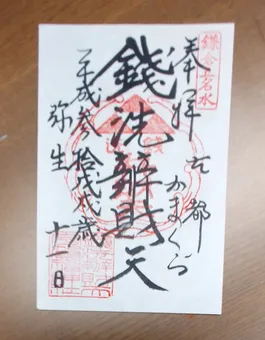 鎌倉五名水
奉拝 古都
かまくら
錢洗辨財天
平成叁拾戊戌歳
弥生 十一日